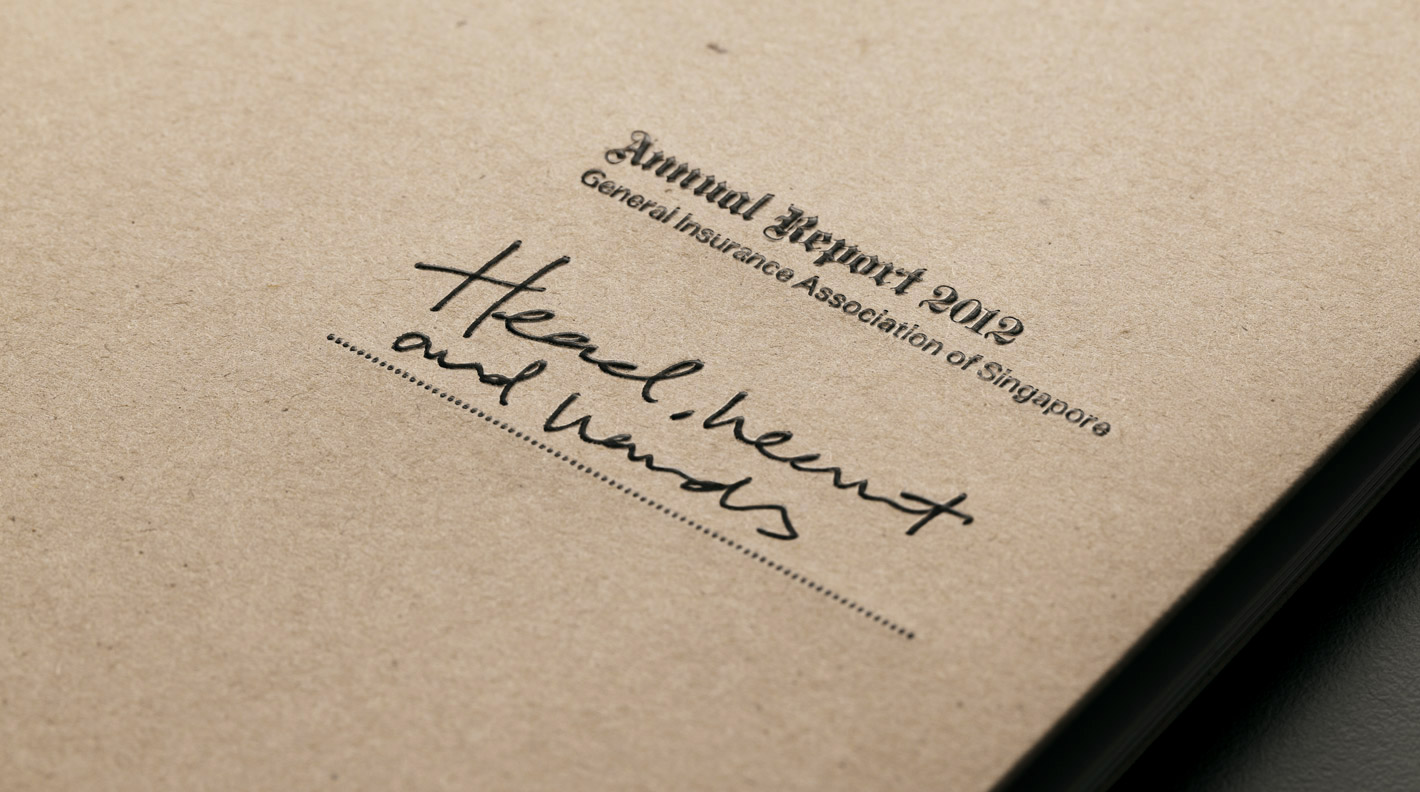 Annual Report 2012
General Insurance Association of Singapore
Head, heart
and hands